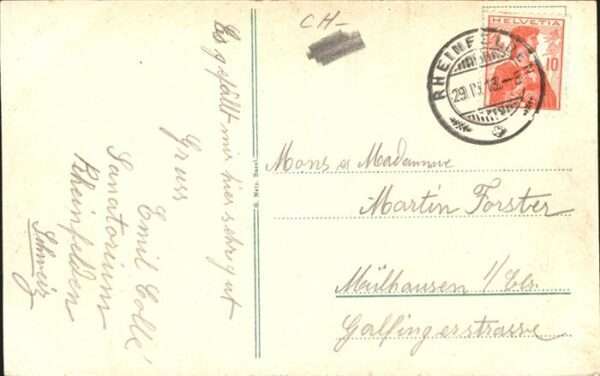 CH-
HELVETIA
10
RHEINFELDEN
29.IV.13.-8
Es gefällt mir hier sehr gut
Gruss
Emil Collé
Sanatorium
Rheinfelden
Schweiz
Mons et Madamme
Martin Forster
Mülhausen i/Els.
Galfingerstrasse